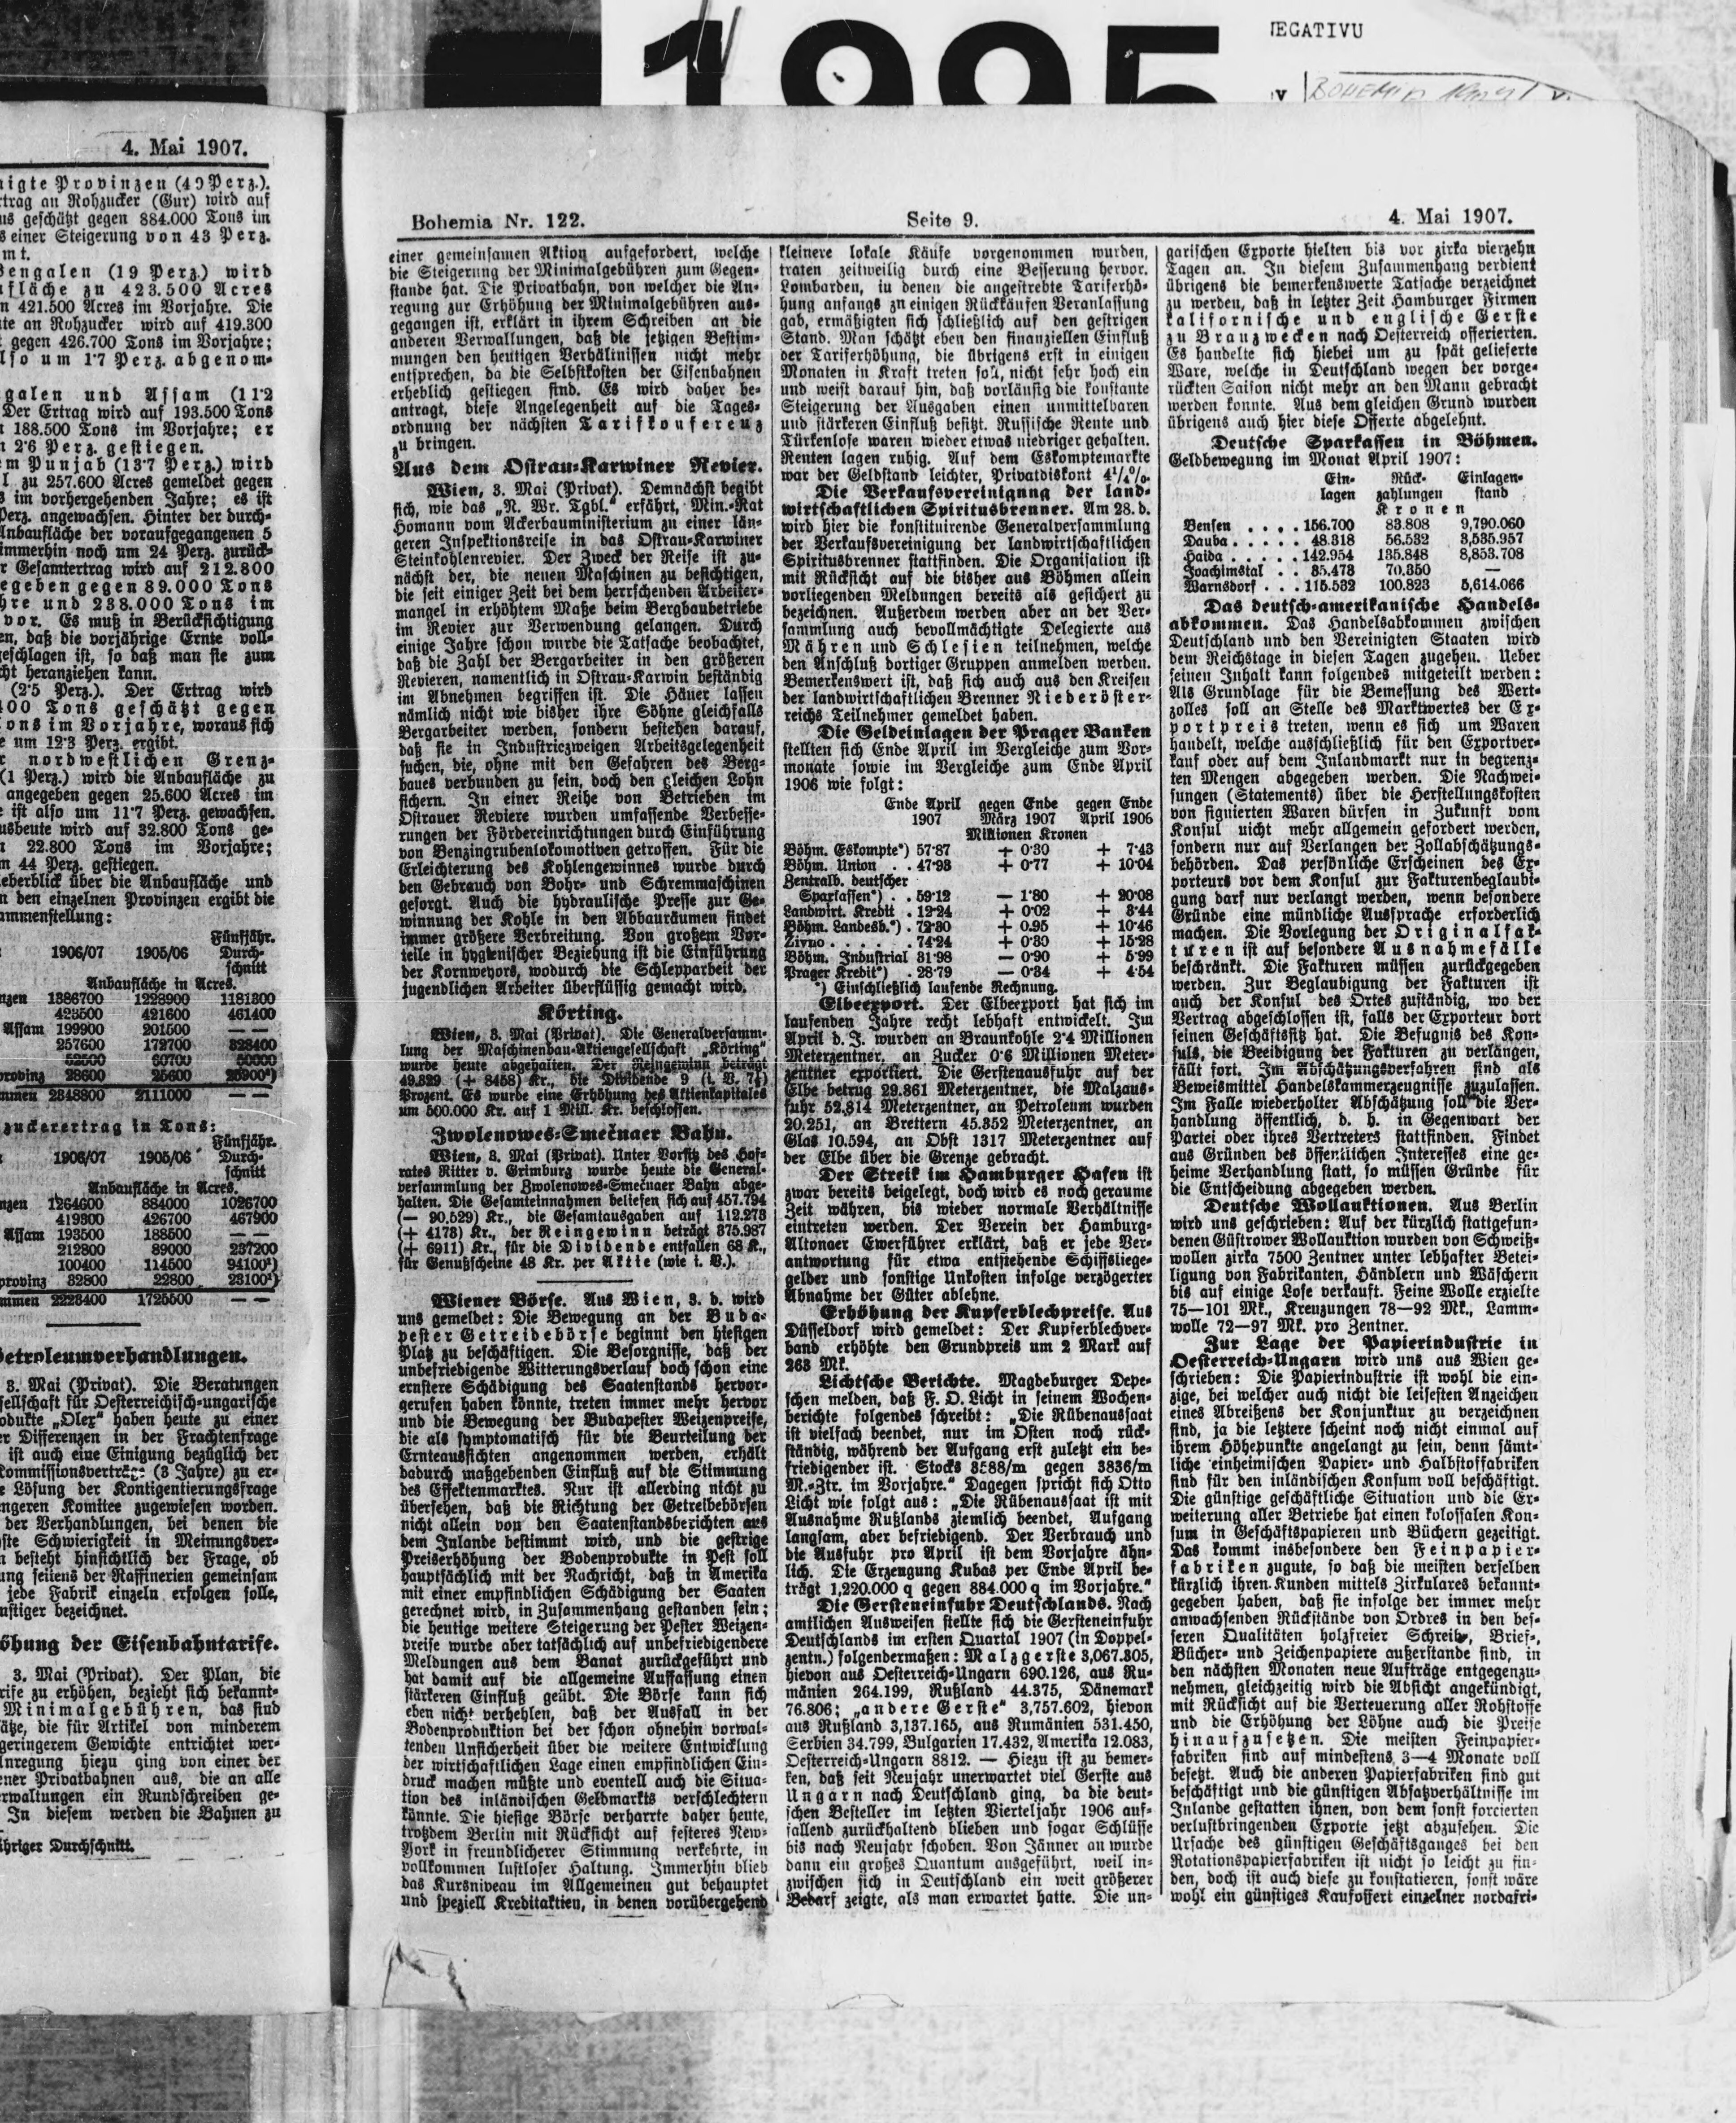 1995
NEGATIVU
4. Mai 1907.
nigte Provinzen (49 Perz.).
trag an Rohzucker (Gur) wird auf
us geschätzt gegen 884.000 Tons im
s einer Steigerung von 43 Perz.
mt.
Bengalen (19 Perz.) wird
fläche zu 423.500 Acres
n 421.500 Acres im Vorjahre. Die
te an Rohzucker wird auf 419.300
gegen 426.700 Tons im Vorjahre;
lso um 1·7 Perz. abgenom-
galen und Assam (11·2
Der Ertrag wird auf 193.500 Tons
188.500 Tons im Vorjahre; er
2·6 Perz. gestiegen.
m Punjab (13·7 Perz.) wird
l zu 257.600 Acres gemeldet gegen
s im vorhergehenden Jahre; es ist
Perz. angewachsen. Hinter der durch-
Anbaufläche der voraufgegangenen 5
immerhin noch um 24 Perz. zurück-
r Gesamtertrag wird auf 212.800
egeben gegen 89.000 Tons
hre und 238.000 Tons im
vor. Es muß in Berücksichtigung
en, daß die vorjährige Ernte voll-
geschlagen ist, so daß man sie zum
cht heranziehen kann.
(2·5 Perz.). Der Ertrag wird
400 Tons geschätzt gegen
ons im Vorjahre, woraus sich
e um 12·3 Perz. ergibt.
r nordwestlichen Grenz-
(1 Perz.) wird die Anbaufläche zu
angegeben gegen 25.600 Acres im
e ist also um 11·7 Perz. gewachsen.
usbeute wird auf 32.800 Tons ge-
n 22.800 Tons im Vorjahre;
m 44 Perz. gestiegen.
eberblick über die Anbaufläche und
n den einzelnen Provinzen ergibt die
ammenstellung:
Fünfjähr.
1906/07 1905/06 Durch-
schnitt
Anbaufläche in Acres.
nzen 1386700 1228900 1181300
423500 421600 461400
Assam 199900 201500 — —
257600 172700 328400
52500 60700 50000
provinz 28600 25600 26900²)
mmen 2348800 2111000 — —
zuckerertrag in Tons:
Fünfjähr.
1906/07 1905/06 Durch-
schnitt
Anbaufläche in Acres.
nzen 1264600 884000 1026700
419300 426700 467900
Assam 193500 188500 — —
212800 89000 237200
100400 114500 94100²)
provinz 32800 22800 23100²)
mmen 2223400 1725500 — —
Petroleumverhandlungen.
3. Mai (Privat). Die Beratungen
sellschaft für Oesterreichisch-ungarische
odukte „Olex“ haben heute zu einer
er Differenzen in der Frachtenfrage
ist auch eine Einigung bezüglich der
Kommissionsverträge (3 Jahre) zu er-
e Lösung der Kontigentierungsfrage
ngeren Komitee zugewiesen worden.
der Verhandlungen, bei denen die
ste Schwierigkeit in Meinungsver-
n besteht hinsichtlich der Frage, ob
ung seitens der Raffinerien gemeinsam
jede Fabrik einzeln erfolgen solle,
nstiger bezeichnet.
öhung der Eisenbahntarife.
3. Mai (Privat). Der Plan, die
rife zu erhöhen, bezieht sich bekannt-
Minimalgebühren, das sind
ätze, die für Artikel von minderem
geringerem Gewichte entrichtet wer-
Anregung hiezu ging von einer der
ener Privatbahnen aus, die an alle
rwaltungen ein Rundschreiben ge-
In diesem werden die Bahnen zu
ähriger Durchschnitt.
Bohemia Nr. 122.
Seite 9.
4. Mai 1907.
einer gemeinsamen Aktion aufgefordert, welche
die Steigerung der Minimalgebühren zum Gegen-
stande hat. Die Privatbahn, von welcher die An-
regung zur Erhöhung der Minimalgebühren aus-
gegangen ist, erklärt in ihrem Schreiben an die
anderen Verwaltungen, daß die jetzigen Bestim-
mungen den heutigen Verhältnissen nicht mehr
entsprechen, da die Selbstkosten der Eisenbahnen
erheblich gestiegen sind. Es wird daher be-
antragt, diese Angelegenheit auf die Tages-
ordnung der nächsten Tarifkonferenz
zu bringen.
Aus dem Ostrau-Karwiner Revier.
Wien, 3. Mai (Privat). Demnächst begibt
sich, wie das „N. Wr. Tgbl.“ erfährt, Min.-Rat
Homann vom Ackerbauministerium zu einer län-
geren Inspektionsreise in das Ostrau-Karwiner
Steinkohlenrevier. Der Zweck der Reise ist zu-
nächst der, die neuen Maschinen zu besichtigen,
die seit einiger Zeit bei dem herrschenden Arbeiter-
mangel in erhöhtem Maße beim Bergbaubetriebe
im Revier zur Verwendung gelangen. Durch
einige Jahre schon wurde die Tatsache beobachtet,
daß die Zahl der Bergarbeiter in den größeren
Revieren, namentlich in Ostrau-Karwin beständig
im Abnehmen begriffen ist. Die Häuer lassen
nämlich nicht wie bisher ihre Söhne gleichfalls
Bergarbeiter werden, sondern bestehen darauf,
daß sie in Industriezweigen Arbeitsgelegenheit
suchen, die, ohne mit den Gefahren des Berg-
baues verbunden zu sein, doch den gleichen Lohn
sichern. In einer Reihe von Betrieben im
Ostrauer Reviere wurden umfassende Verbesse-
rungen der Fördereinrichtungen durch Einführung
von Benzingrubenlokomotiven getroffen. Für die
Erleichterung des Kohlengewinnes wurde durch
den Gebrauch von Bohr- und Schremmaschinen
gesorgt. Auch die hydraulische Presse zur Ge-
winnung der Kohle in den Abbauräumen findet
immer größere Verbreitung. Von großem Vor-
teile in hygienischer Beziehung ist die Einführung
der Kornweyors, wodurch die Schlepparbeit der
jugendlichen Arbeiter überflüssig gemacht wird.
Körting.
Wien, 3. Mai (Privat). Die Generalversamm-
lung der Maschinenbau-Aktiengesellschaft „Körting“
wurde heute abgehalten. Der Reingewinn beträgt
49.829 (+ 8458) Kr., die Dividende 9 (i. V. 7½)
Prozent. Es wurde eine Erhöhung des Aktienkapitales
um 500.000 Kr. auf 1 Mill. Kr. beschlossen.
Zwolenowes-Smečnaer Bahn.
Wien, 3. Mai (Privat). Unter Vorsitz des Hof-
rates Ritter v. Grimburg wurde heute die General-
versammlung der Zwolenowes-Smečnaer Bahn abge-
halten. Die Gesamteinnahmen beliefen sich auf 457.794
(— 90.529) Kr., die Gesamtausgaben auf 112.273
(+ 4173) Kr., der Reingewinn beträgt 375.987
(+ 6911) Kr., für die Dividende entfallen 68 K.,
für Genußscheine 48 Kr. per Aktie (wie i. V.).
Wiener Börse. Aus Wien, 3. d. wird
uns gemeldet: Die Bewegung an der Buda-
pester Getreidebörse beginnt den hiesigen
Platz zu beschäftigen. Die Besorgnisse, daß der
unbefriedigende Witterungsverlauf doch schon eine
ernstere Schädigung des Saatenstands hervor-
gerufen haben könnte, treten immer mehr hervor
und die Bewegung der Budapester Weizenpreise,
die als symptomatisch für die Beurteilung der
Ernteaussichten angenommen werden, erhält
dadurch maßgebenden Einfluß auf die Stimmung
des Effektenmarktes. Nur ist allerding nicht zu
übersehen, daß die Richtung der Getreibebörsen
nicht allein von den Saatenstandsberichten aus
dem Inlande bestimmt wird, und die gestrige
Preiserhöhung der Bodenprodukte in Pest soll
hauptsächlich mit der Nachricht, daß in Amerika
mit einer empfindlichen Schädigung der Saaten
gerechnet wird, in Zusammenhang gestanden sein;
die heutige weitere Steigerung der Pester Weizen-
preise wurde aber tatsächlich auf unbefriedigendere
Meldungen aus dem Banat zurückgeführt und
hat damit auf die allgemeine Auffassung einen
stärkeren Einfluß geübt. Die Börse kann sich
eben nicht verhehlen, daß der Ausfall in der
Bodenproduktion bei der schon ohnehin vorwal-
tenden Unsicherheit über die weitere Entwicklung
der wirtschaftlichen Lage einen empfindlichen Ein-
druck machen müßte und eventell auch die Situa-
tion des inländischen Geldmarkts verschlechtern
könnte. Die hiesige Börse verharrte daher heute,
trotzdem Berlin mit Rücksicht auf festeres New-
York in freundlicherer Stimmung verkehrte, in
vollkommen lustloser Haltung. Immerhin blieb
das Kursniveau im Allgemeinen gut behauptet
und speziell Kreditaktien, in denen vorübergehend
kleinere lokale Käufe vorgenommen wurden,
traten zeitweilig durch eine Besserung hervor.
Lombarden, in denen die angestrebte Tariferhö-
hung anfangs zu einigen Rückkäufen Veranlassung
gab, ermäßigten sich schließlich auf den gestrigen
Stand. Man schätzt eben den finanziellen Einfluß
der Tariferhöhung, die übrigens erst in einigen
Monaten in Kraft treten soll, nicht sehr hoch ein
und weist darauf hin, daß vorläufig die konstante
Steigerung der Ausgaben einen unmittelbaren
und stärkeren Einfluß besitzt. Russische Rente und
Türkenlose waren wieder etwas niedriger gehalten.
Renten lagen ruhig. Auf dem Eskomptemarkte
war der Geldstand leichter, Privatdiskont 4¼%.
Die Verkaufsvereinigung der land-
wirtschaftlichen Spiritusbrenner. Am 28. d.
wird hier die konstituirende Generalversammlung
der Verkaufsvereinigung der landwirtschaftlichen
Spiritusbrenner stattfinden. Die Organisation ist
mit Rücksicht auf die bisher aus Böhmen allein
vorliegenden Meldungen bereits als gesichert zu
bezeichnen. Außerdem werden aber an der Ver-
sammlung auch bevollmächtigte Delegierte aus
Mähren und Schlesien teilnehmen, welche
den Anschluß dortiger Gruppen anmelden werden.
Bemerkenswert ist, daß sich auch aus den Kreisen
der landwirtschaftlichen Brenner Niederöster-
reichs Teilnehmer gemeldet haben.
Die Geldeinlagen der Prager Banken
stellten sich Ende April im Vergleiche zum Vor-
monate sowie im Vergleiche zum Ende April
1906 wie folgt:
Ende April gegen Ende gegen Ende
1907 März 1907 April 1906
Millionen Kronen
Böhm. Eskompte*) 57·87 + 0·30 + 7·43
Böhm. Union . . 47·93 + 0·77 + 10·04
Zentralb. deutscher
Sparkassen*) . . 59·12 — 1·80 + 20·08
Landwirt. Kredit . 12·24 + 0·02 + 3·44
Böhm. Landesb.*) . 72·30 + 0.95 + 10·46
Zivno . . . . . 74·24 + 0·30 + 15·28
Böhm. Industrial 31·98 — 0·90 + 5·99
Prager Kredit*) . 28·79 — 0·34 + 4·54
*) Einschließlich laufende Rechnung.
Elbeexport. Der Elbeexport hat sich im
laufenden Jahre recht lebhaft entwickelt. Im
April d. J. wurden an Braunkohle 2·4 Millionen
Meterzentner, an Zucker 0·6 Millionen Meter-
zentner exportiert. Die Gerstenausfuhr auf der
Elbe betrug 29.861 Meterzentner, die Malzaus-
fuhr 52.814 Meterzentner, an Petroleum wurden
20.251, an Brettern 45.352 Meterzentner, an
Glas 10.594, an Obst 1317 Meterzentner auf
der Elbe über die Grenze gebracht.
Der Streik im Hamburger Hafen ist
zwar bereits beigelegt, doch wird es noch geraume
Zeit währen, bis wieder normale Verhältnisse
eintreten werden. Der Verein der Hamburg-
Altonaer Ewerführer erklärt, daß er jede Ver-
antwortung für etwa entstehende Schiffsliege-
gelder und sonstige Unkosten infolge verzögerter
Abnahme der Güter ablehne.
Erhöhung der Kupferblechpreise. Aus
Düsseldorf wird gemeldet: Der Kupferblechver-
band erhöhte den Grundpreis um 2 Mark auf
263 Mk.
Lichtsche Berichte. Magdeburger Depe-
schen melden, daß F. O. Licht in seinem Wochen-
berichte folgendes schreibt: „Die Rübenaussaat
ist vielfach beendet, nur im Osten noch rück-
ständig, während der Aufgang erst zuletzt ein be-
friedigender ist. Stocks 3588/m gegen 3836/m
M.-Ztr. im Vorjahre.“ Dagegen spricht sich Otto
Licht wie folgt aus: „Die Rübenaussaat ist mit
Ausnahme Rußlands ziemlich beendet, Aufgang
langsam, aber befriedigend. Der Verbrauch und
die Ausfuhr pro April ist dem Vorjahre ähn-
lich. Die Erzeugung Kubas per Ende April be-
trägt 1,220.000 q gegen 884.000 q im Vorjahre.“
Die Gersteneinfuhr Deutschlands. Nach
amtlichen Ausweisen stellte sich die Gersteneinfuhr
Deutschlands im ersten Quartal 1907 (in Doppel-
zentn.) folgendermaßen: Malzgerste 3,067.305,
hievon aus Oesterreich-Ungarn 690.126, aus Ru-
mänien 264.199, Rußland 44.375, Dänemark
76.806; „andere Gerste“ 3,757.602, hievon
aus Rußland 3,137.165, aus Rumänien 531.450,
Serbien 34.799, Bulgarien 17.432, Amerika 12.083,
Oesterreich-Ungarn 8812. — Hiezu ist zu bemer-
ken, daß seit Neujahr unerwartet viel Gerste aus
Ungarn nach Deutschland ging, da die deut-
schen Besteller im letzten Vierteljahr 1906 auf-
fallend zurückhaltend blieben und sogar Schlüsse
bis nach Neujahr schoben. Von Jänner an wurde
dann ein großes Quantum ausgeführt, weil in-
zwischen sich in Deutschland ein weit größerer
Bedarf zeigte, als man erwartet hatte. Die un-
garischen Exporte hielten bis vor zirka vierzehn
Tagen an. In diesem Zusammenhang verdient
übrigens die bemerkenswerte Tatsache verzeichnet
zu werden, daß in letzter Zeit Hamburger Firmen
kalifornische und englische Gerste
zu Branzwecken nach Oesterreich offerierten.
Es handelte sich hiebei um zu spät gelieferte
Ware, welche in Deutschland wegen der vorge-
rückten Saison nicht mehr an den Mann gebracht
werden konnte. Aus dem gleichen Grund wurden
übrigens auch hier diese Offerte abgelehnt.
Deutsche Sparkassen in Böhmen.
Geldbewegung im Monat April 1907:
Ein- Rück- Einlagen-
lagen zahlungen stand
Kronen
Bensen . . . . 156.700 83.808 9,790.060
Dauba . . . . . 48.318 56.532 3,535.957
Haida . . . . . 142.954 135.848 8,853.708
Joachimstal . . 85.478 70.350 —
Warnsdorf . . . 115.532 100.823 5,614.066
Das deutsch-amerikanische Handels-
abkommen. Das Handelsabkommen zwischen
Deutschland und den Vereinigten Staaten wird
dem Reichstage in diesen Tagen zugehen. Ueber
seinen Inhalt kann folgendes mitgeteilt werden:
Als Grundlage für die Bemessung des Wert-
zolles soll an Stelle des Marktwertes der Ex-
portpreis treten, wenn es sich um Waren
handelt, welche ausschließlich für den Exportver-
kauf oder auf dem Inlandmarkt nur in begrenz-
ten Mengen abgegeben werden. Die Nachwei-
sungen (Statements) über die Herstellungskosten
von signierten Waren dürfen in Zukunft vom
Konsul nicht mehr allgemein gefordert werden,
sondern nur auf Verlangen der Zollabschätzungs-
behörden. Das persönliche Erscheinen des Ex-
porteurs vor dem Konsul zur Fakturenbeglaubi-
gung darf nur verlangt werden, wenn besondere
Gründe eine mündliche Aussprache erforderlich
machen. Die Vorlegung der Originalfak-
turen ist auf besondere Ausnahmefälle
beschränkt. Die Fakturen müssen zurückgegeben
werden. Zur Beglaubigung der Fakturen ist
auch der Konsul des Ortes zuständig, wo der
Vertrag abgeschlossen ist, falls der Exporteur dort
seinen Geschäftssitz hat. Die Befugnis des Kon-
suls, die Beeidigung der Fakturen zu verlangen,
fällt fort. Im Abschätzungsverfahren sind als
Beweismittel Handelskammerzeugnisse zuzulassen.
Im Falle wiederholter Abschätzung soll die Ver-
handlung öffentlich, d. h. in Gegenwart der
Partei oder ihres Vertreters stattfinden. Findet
aus Gründen des öffentlichen Interesses eine ge-
heime Verhandlung statt, so müssen Gründe für
die Entscheidung abgegeben werden.
Deutsche Wollauktionen. Aus Berlin
wird uns geschrieben: Auf der kürzlich stattgefun-
denen Güstrower Wollauktion wurden von Schweiß-
wollen zirka 7500 Zentner unter lebhafter Betei-
ligung von Fabrikanten, Händlern und Wäschern
bis auf einige Lose verkauft. Feine Wolle erzielte
75—101 Mk., Kreuzungen 78—92 Mk., Lamm-
wolle 72—97 Mk. pro Zentner.
Zur Lage der Papierindustrie in
Oesterreich-Ungarn wird uns aus Wien ge-
schrieben: Die Papierindustrie ist wohl die ein-
zige, bei welcher auch nicht die leisesten Anzeichen
eines Abreißens der Konjunktur zu verzeichnen
sind, ja die letztere scheint noch nicht einmal auf
ihrem Höhepunkte angelangt zu sein, denn sämt-
liche einheimischen Papier- und Halbstoffabriken
sind für den inländischen Konsum voll beschäftigt.
Die günstige geschäftliche Situation und die Er-
weiterung aller Betriebe hat einen kolossalen Kon-
sum in Geschäftspapieren und Büchern gezeitigt.
Das kommt insbesondere den Feinpapier-
fabriken zugute, so daß die meisten derselben
kürzlich ihren Kunden mittels Zirkulares bekannt-
gegeben haben, daß sie infolge der immer mehr
anwachsenden Rückstände von Ordres in den bes-
seren Qualitäten holzfreier Schreib-, Brief-,
Bücher- und Zeichenpapiere außerstande sind, in
den nächsten Monaten neue Aufträge entgegenzu-
nehmen, gleichzeitig wird die Absicht angekündigt,
mit Rücksicht auf die Verteuerung aller Rohstoffe
und die Erhöhung der Löhne auch die Preise
hinaufzusetzen. Die meisten Feinpapier-
fabriken sind auf mindestens 3—4 Monate voll
besetzt. Auch die anderen Papierfabriken sind gut
beschäftigt und die günstigen Absatzverhältnisse im
Inlande gestatten ihnen, von dem sonst forcierten
verlustbringenden Exporte jetzt abzusehen. Die
Ursache des günstigen Geschäftsganges bei den
Rotationspapierfabriken ist nicht so leicht zu fin-
den, doch ist auch diese zu konstatieren, sonst wäre
wohl ein günstiges Kaufoffert einzelner nordafri-